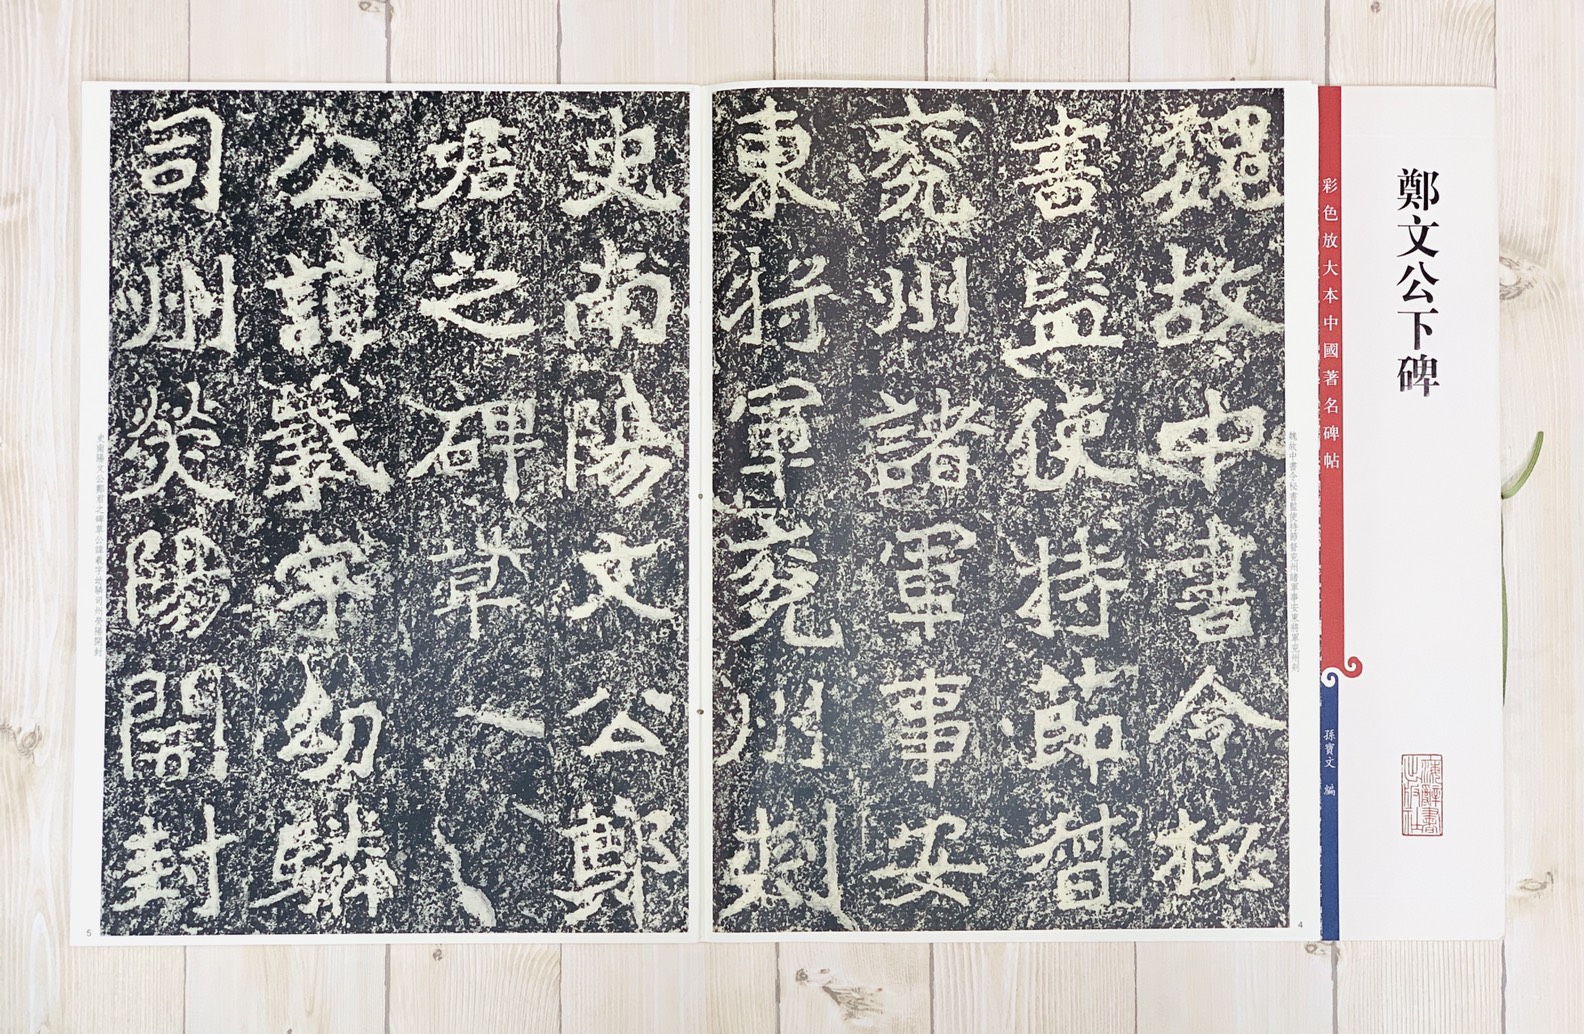 鄭文公下碑
彩色放大本中國著名碑帖
孫寶文 編
魏故中書令秘
書監使持節督
兗州諸軍事安
東將軍兗州刺
史南陽文公鄭
君之碑草
公諱羲字幼驎
司州熒陽開封
魏故中書令秘書監使持節督兗州諸軍事安東將軍兗州刺
史南陽文公鄭君之碑草公諱羲字幼驎司州熒陽開封
4
5